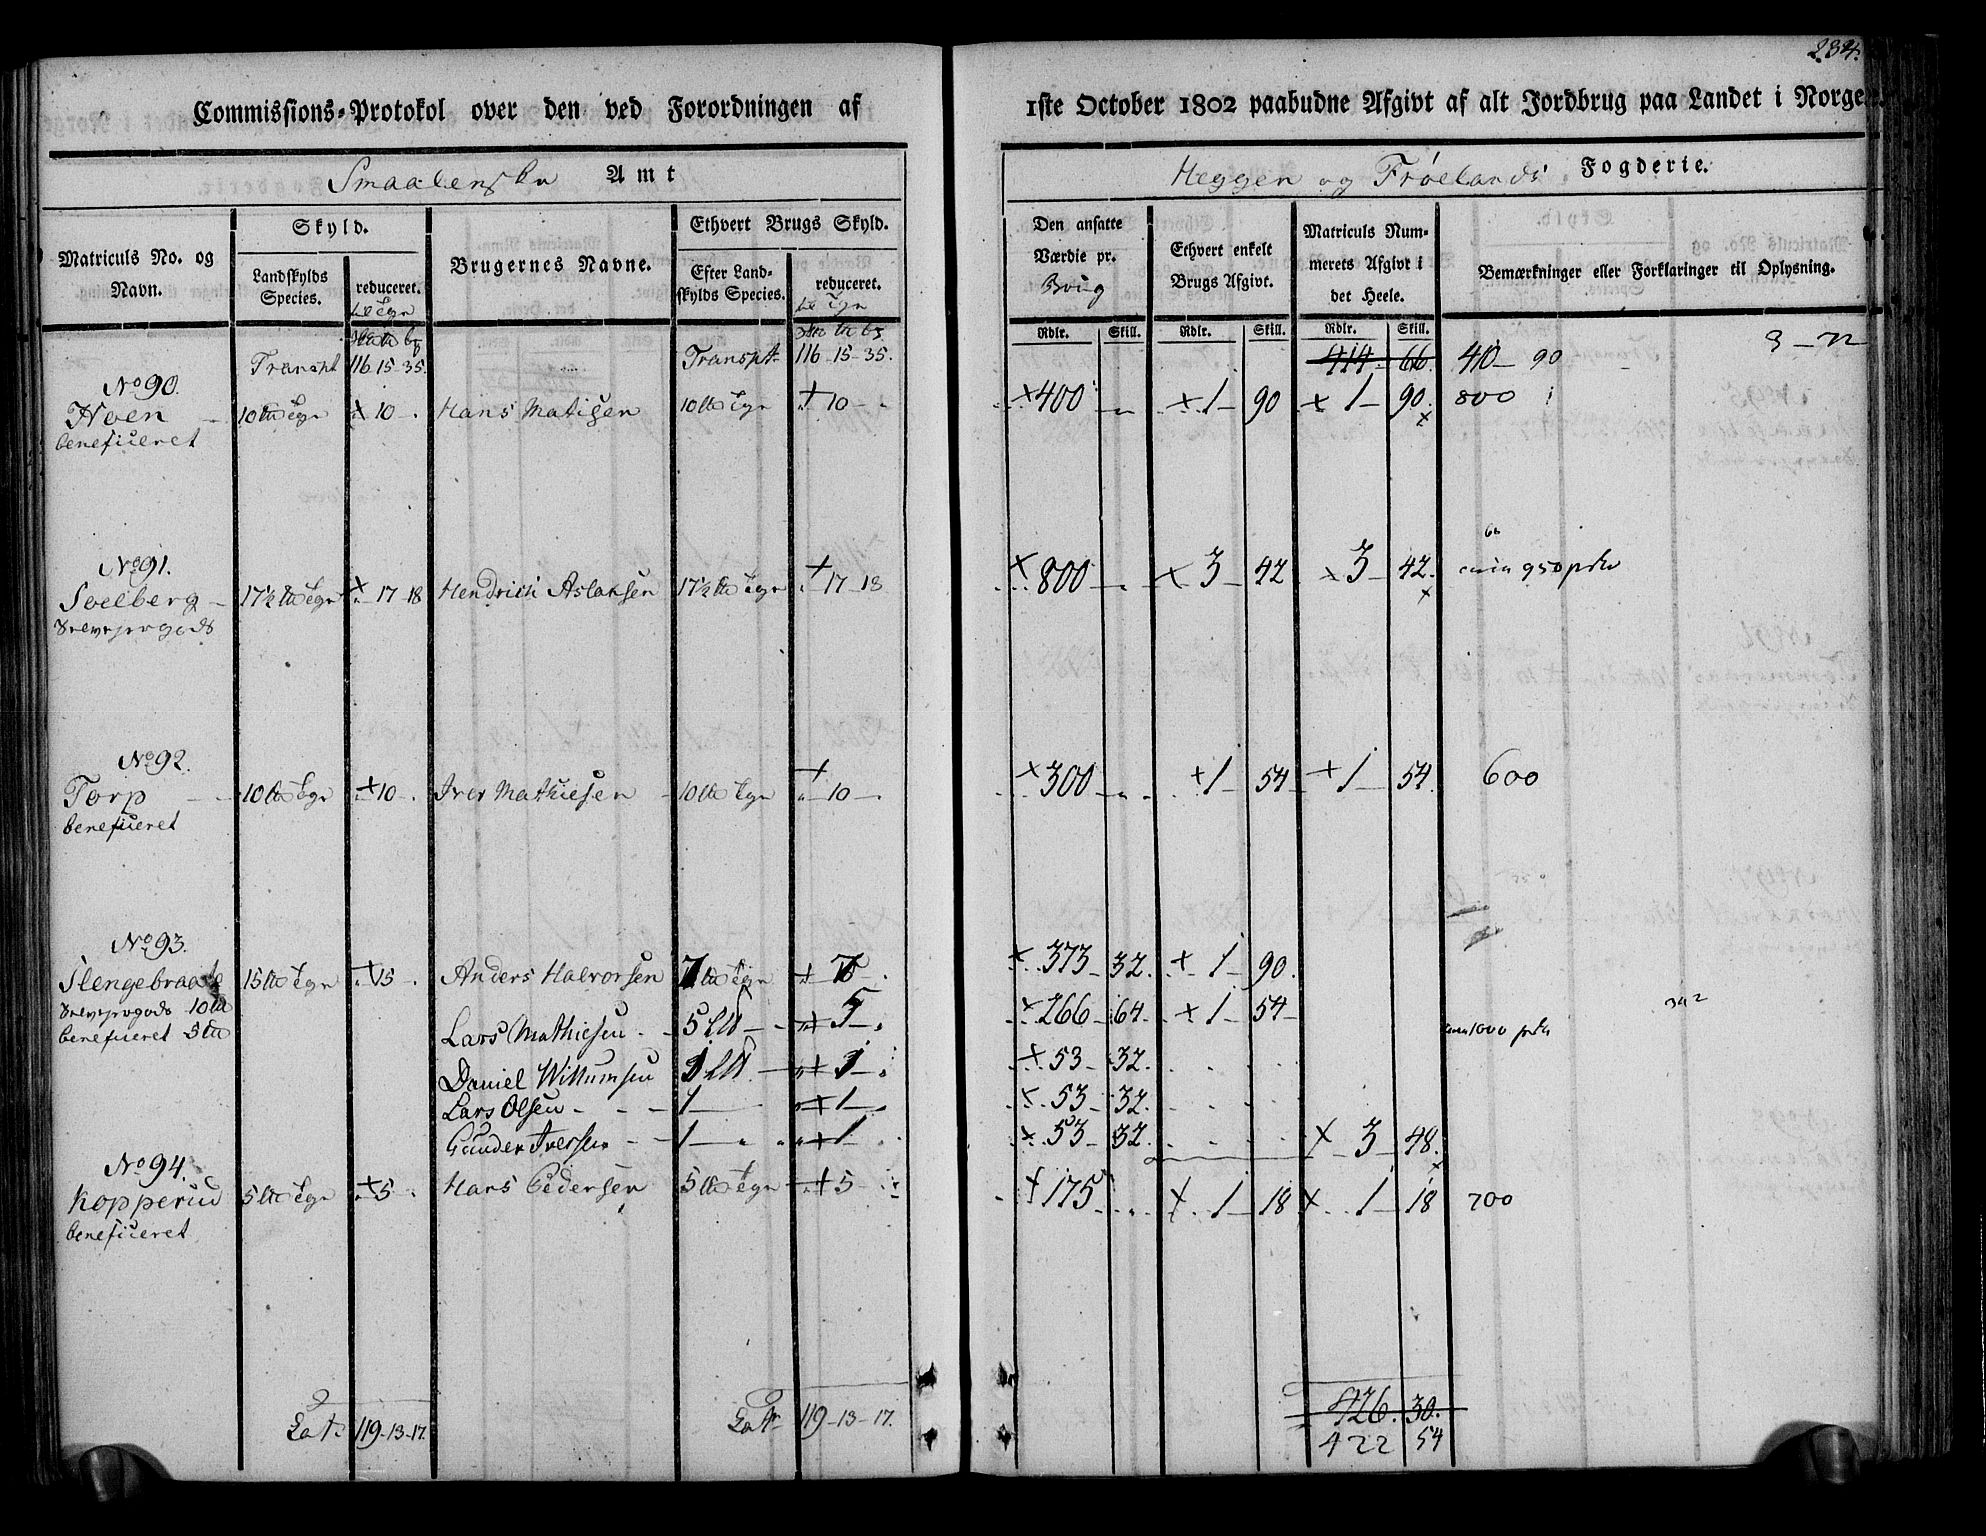 234.
Commissions-Protokol over den ved Forordningen af 1ste October 1802 paabudne Afgivt af alt Jordbrug paa Landet i Norge
Smaalenske Amt
Heggen og Frøelands Fogderie.
Matriculs No. og Navn.
Skyld.
Landskylds Species.
reduceret.
Brugernes Navne.
Ethvert Brugs Skyld.
Efter Landskylds Species.
reduceret.
Den ansatte Værdie pr. Brüg
Ethvert enkelt Brugs Afgivt.
Matriculs Nummerets Afgivt i det Heele.
Bemærkninger eller Forklaringer til Oplysning.
Rdlr. Skill. Rdlr. Skill. Rdlr. Skill.
Transpt 116. 15. 35. Transpt 116-15-35. 414 66. 410 90
No 90.
Hoen 10 Tgn + 10 Hans Matisen 10 Tgn + 10 + 400 + 1 90 + 1 90. 800
beneficeret
No 91.
Soelberg 17½ Tgn + 17-18 Hendrich Aslaksen 17½ Tgn + 17-18 + 800 + 3 42 + 3 42. 950
No 92.
Torp 10 Tgn + 10 Iver Mathiesen 10 Tgn + 10 + 300 + 1 54 + 1 54. 600
beneficeret
No 93.
Slengebraate 15 Tgn + 15 Anders Halvorsen 7 Tgn + 7 + 373 32. + 1 90.
10
beneficeret 5
Lars Mathiesen 5 + 5 + 266 64. + 1 54 1000
Daniel Willumsen + 53 32.
Lars Olsen 1 + 1 + 53 32.
Gunder Iversen 1 + 1 + 53 32. + 3 48.
No 94.
Kopperud 5 Tgn + 5 Hans Pedersen 5 Tgn + 5 + 175 + 1 18 + 1 18 700
beneficeret
Lat. 119-13-17. Lat. 119-13-17. 426. 30.
422 54